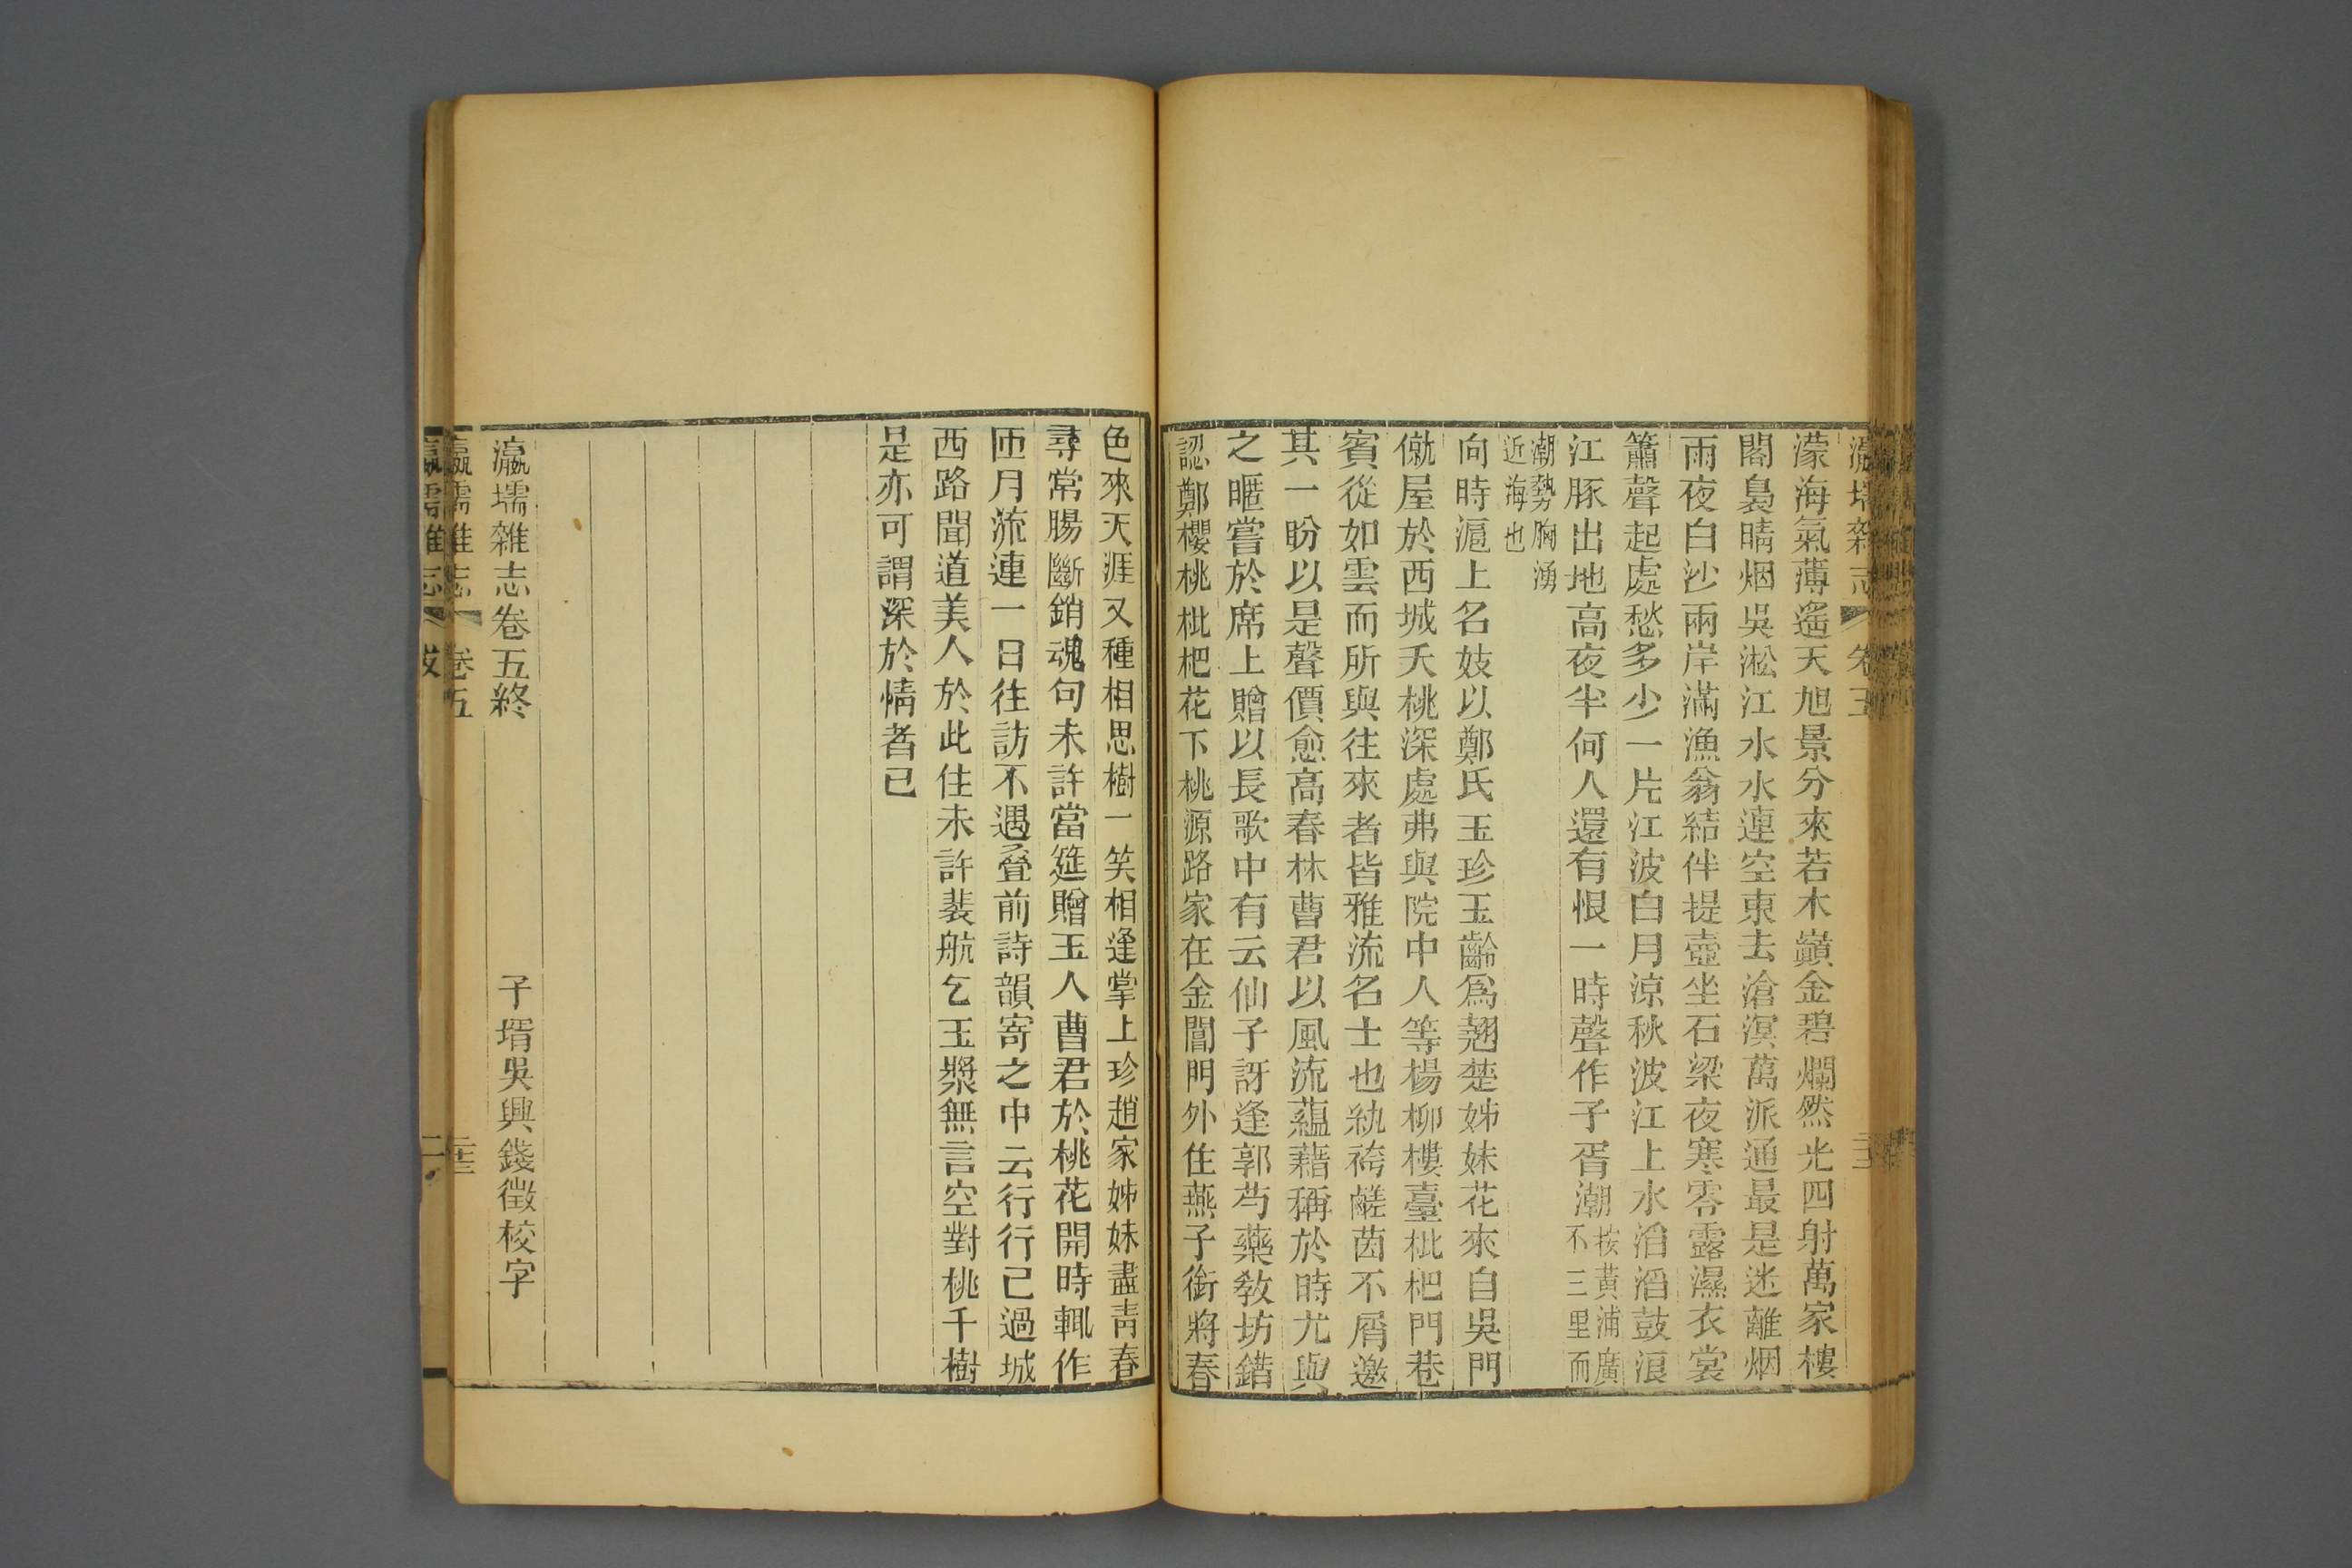 濛海氣薄遙天旭景分來若木巔金碧爛然光四射萬家樓
閣裊晴烟吳淞江水水連空東去滄溟萬派通最是迷離烟
雨夜白沙兩岸滿漁翁結伴提壺坐石梁夜寒零露濕衣裳
簫聲起處愁多少一片江波白月涼秋波江上水滔滔鼓浪
江豚出地高夜半何人還有恨一時聲作子胥潮按黃浦廣不三里而
潮勢胸湧近海也
向時滬上名妓以鄭氏玉珍玉齡爲翹楚姊妹花來自吳門
僦屋於西城夭桃深處弗與院中人等楊柳樓臺枇杷門巷
賓從如雲而所與往來者皆雅流名士也紈袴鹺茵不屑邀
其一盼以是聲價愈高春林曹君以風流蘊藉稱於時尤與
之暱嘗於席上贈以長歌中有云仙子訝逢郭芍藥教坊錯
認鄭櫻桃枇杷花下桃源路家在金閶門外住燕子銜將春
色來天涯又種相思樹一笑相逢掌上珍趙家姊妹盡靑春
尋常腸斷銷魂句未許當筵贈玉人曹君於桃花開時輒作
匝月流連一日往訪不遇叠前詩韻寄之中云行行已過城
西路聞道美人於此住未許裴航乞玉漿無言空對桃千樹
是亦可謂深於情者已
瀛壖雜志卷五終
子壻吳興錢徵校字
瀛壖雜志
卷五
瀛壖雜志
跋